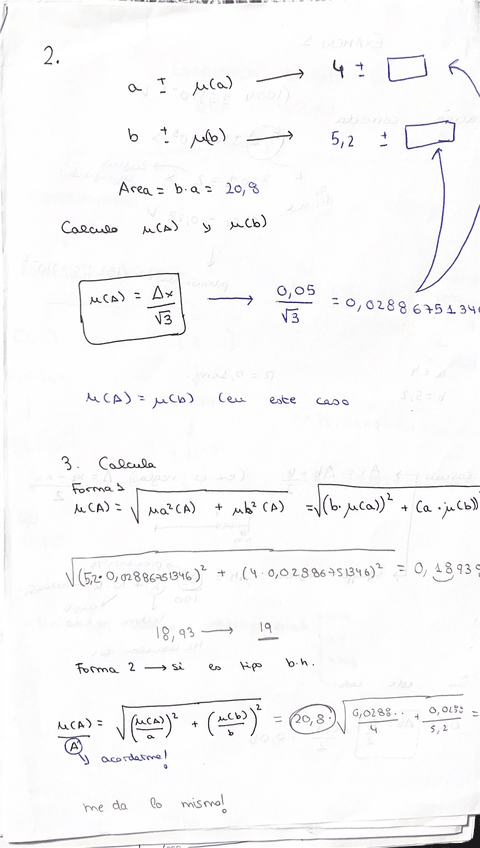 2.
a ± μ(a) → 4 ± □
b ± μ(b) → 5,2 ± □
Area = b·a = 20,8
Calculo μ(A) y μ(b)
μ(A) = Δx/√3 → 0,05/√3 = 0,0288675134
μ(A) = μ(b) (en este caso
3. Calcula
Forma 1
μ(A) = √(μa²(A) + μb²(A)) = √((b·μ(a))² + (a·μ(b))²
√((5,2·0,02886751346)² + (4·0,02886751346)²) = 0,1893
18,93 → 19
Forma 2 → si es tipo b·h.
μ(A)/A = √((μ(A)/a)² + (μ(b)/b)²) = 20,8·√(0,0288../4 + 0,028/5,2 =
acordarme!
me da lo mismo!